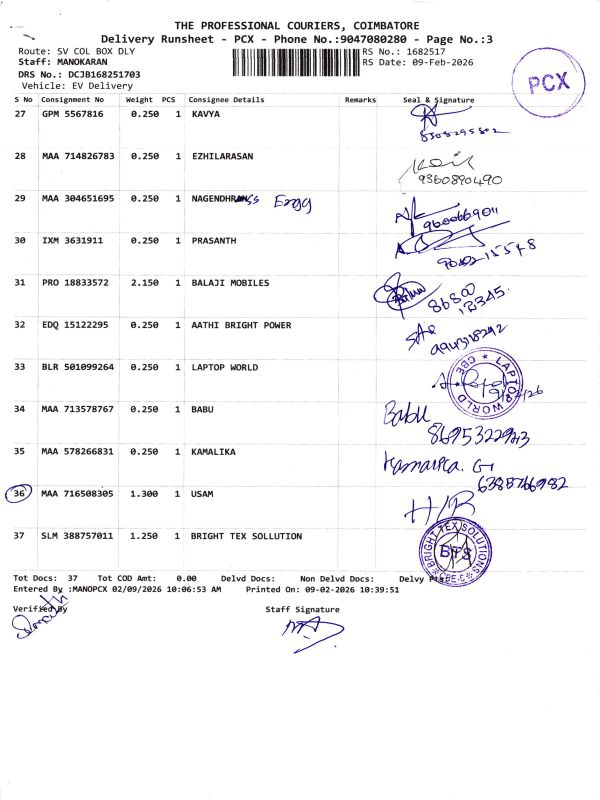 THE PROFESSIONAL COURIERS, COIMBATORE
Delivery Runsheet - PCX - Phone No.:9047080280 - Page No.:3
Route: SV COL BOX DLY RS No.: 1682517
Staff: MANOKARAN RS Date: 09-Feb-2026
DRS No.: DCJB168251703
Vehicle: EV Delivery
PCX
S No Consignment No Weight PCS Consignee Details Remarks Seal & Signature
27 GPM 5567816 0.250 1 KAVYA
28 MAA 714826783 0.250 1 EZHILARASAN
9360890490
29 MAA 304651695 0.250 1 Engg
9600669011
30 IXM 3631911 0.250 1 PRASANTH
31 PRO 18833572 2.150 1 BALAJI MOBILES
86800
12345.
32 EDQ 15122295 0.250 1 AATHI BRIGHT POWER
33 BLR 501099264 0.250 1 LAPTOP WORLD
LAPTOP WORLD CBE
34 MAA 713578767 0.250 1 BABU
Babu
35 MAA 578266831 0.250 1 KAMALIKA
36 MAA 716508305 1.300 1 USAM
37 SLM 388757011 1.250 1 BRIGHT TEX SOLLUTION
BRIGHT TEX SOLUTIONS BTS CBE-C
Tot Docs: 37 Tot COD Amt: 0.00 Delvd Docs: Non Delvd Docs: Delvy
Entered By :MANOPCX 02/09/2026 10:06:53 AM Printed On: 09-02-2026 10:39:51
Verified By Staff Signature